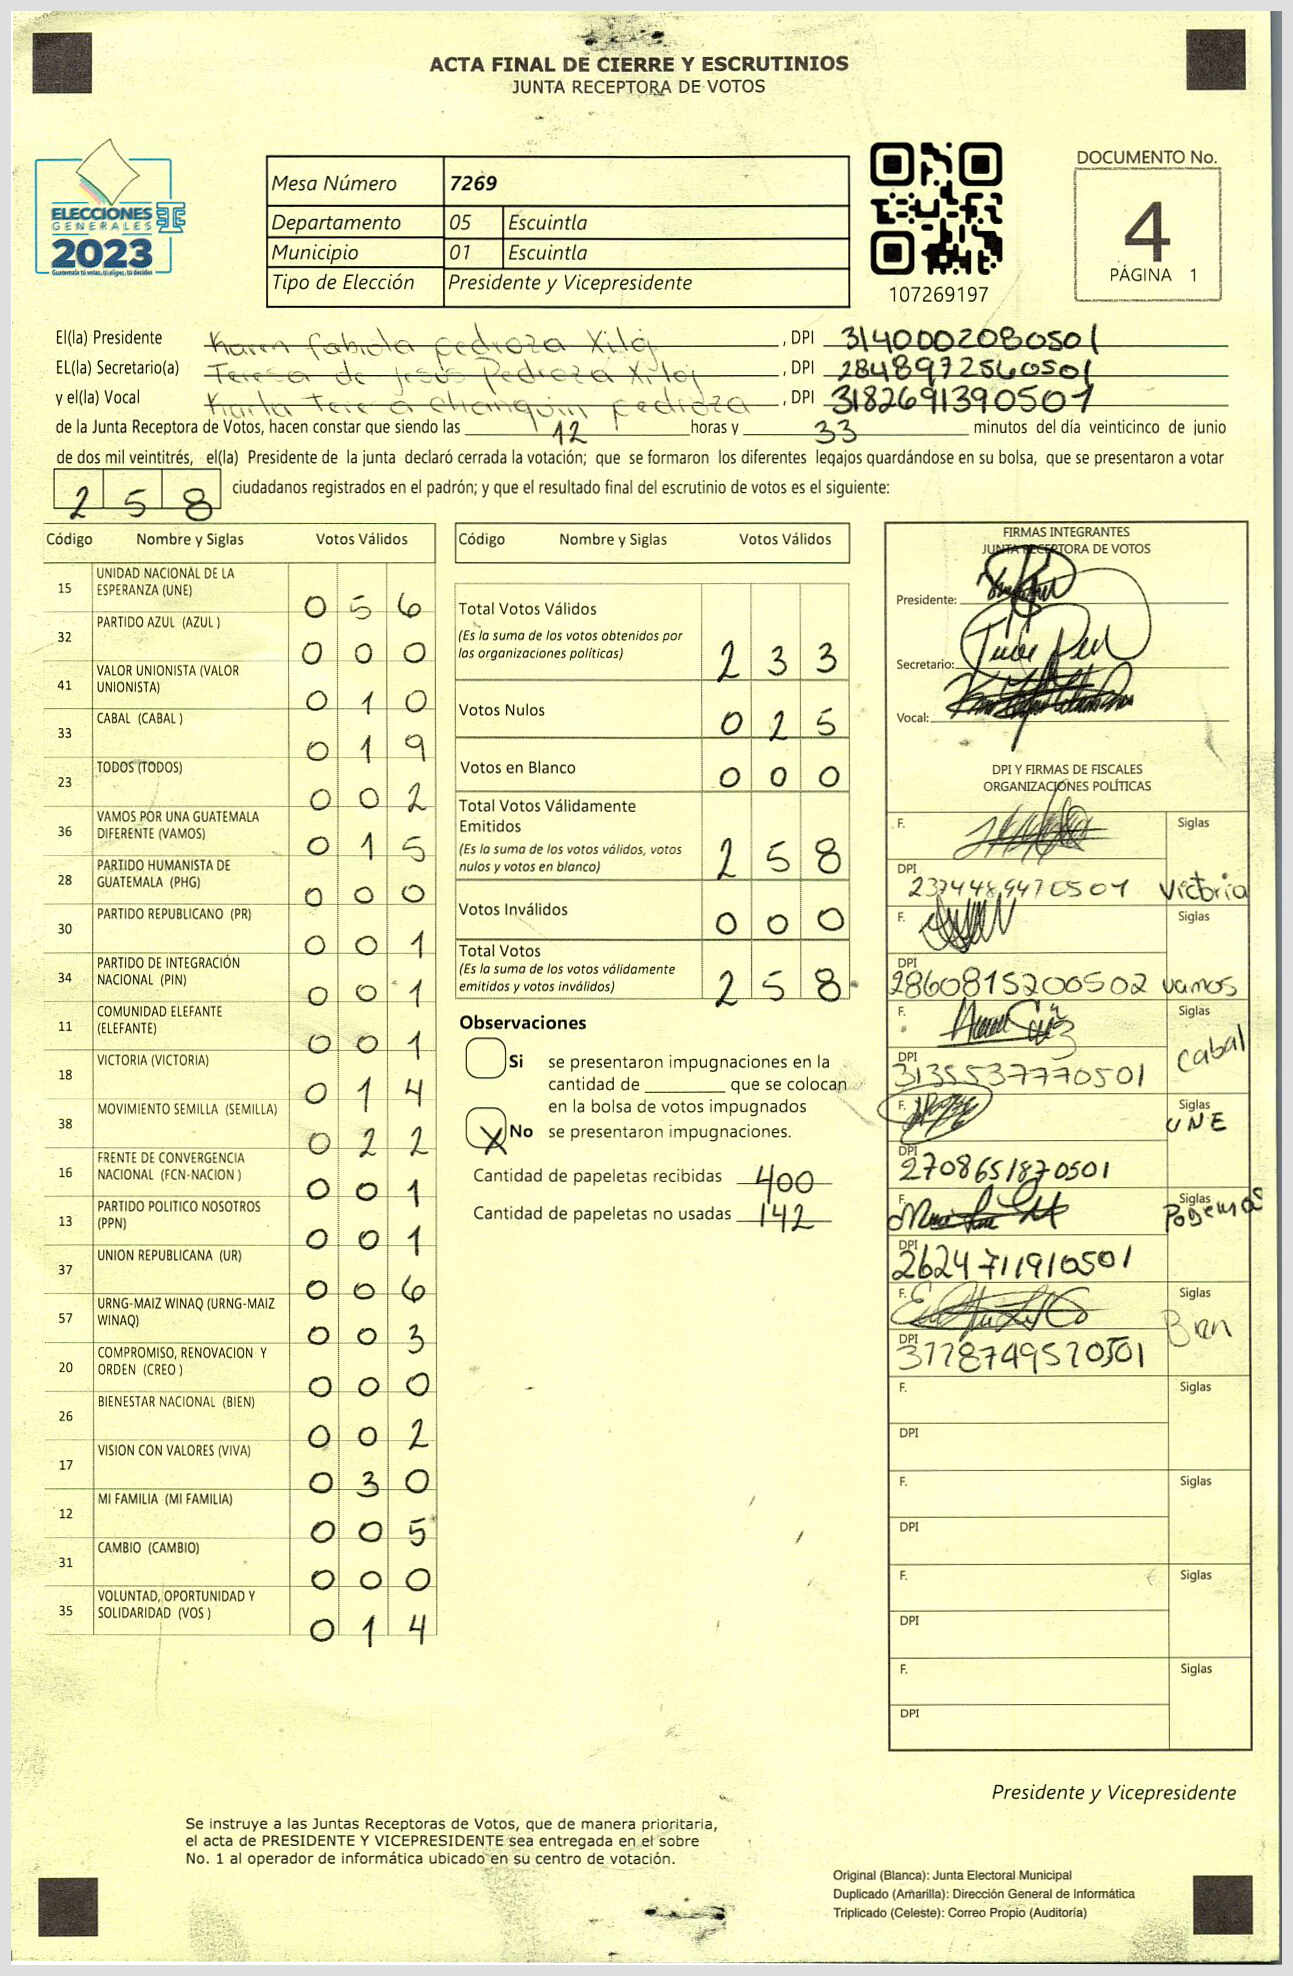 ACTA FINAL DE CIERRE Y ESCRUTINIOS
JUNTA RECEPTORA DE VOTOS
ELECCIONES
GENERALES
2023
Guatemala tú votas, tú eliges, tú decides
Mesa Número 7269
Departamento 05 Escuintla
Municipio 01 Escuintla
Tipo de Elección Presidente y Vicepresidente
107269197
DOCUMENTO No.
4
PÁGINA 1
El(la) Presidente Karen fabiola pedroza Xiloj, DPI 3140002080501
EL(la) Secretario(a) Teresa de Jesus Pedroza Xiloj, DPI 2848972560501
y el(la) Vocal Karla Tere a chonquin pedroza, DPI 3182691390501
de la Junta Receptora de Votos, hacen constar que siendo las 12 horas y 33 minutos del día veinticinco de junio
de dos mil veintitrés, el(la) Presidente de la junta declaró cerrada la votación; que se formaron los diferentes legajos guardándose en su bolsa, que se presentaron a votar
258 ciudadanos registrados en el padrón; y que el resultado final del escrutinio de votos es el siguiente:
Código Nombre y Siglas Votos Válidos
15 UNIDAD NACIONAL DE LA ESPERANZA (UNE) 056
32 PARTIDO AZUL (AZUL ) 000
41 VALOR UNIONISTA (VALOR UNIONISTA) 010
33 CABAL (CABAL ) 019
23 TODOS (TODOS) 002
36 VAMOS POR UNA GUATEMALA DIFERENTE (VAMOS) 015
28 PARTIDO HUMANISTA DE GUATEMALA (PHG) 000
30 PARTIDO REPUBLICANO (PR) 001
34 PARTIDO DE INTEGRACIÓN NACIONAL (PIN) 001
11 COMUNIDAD ELEFANTE (ELEFANTE) 001
18 VICTORIA (VICTORIA) 014
38 MOVIMIENTO SEMILLA (SEMILLA) 022
16 FRENTE DE CONVERGENCIA NACIONAL (FCN-NACION ) 001
13 PARTIDO POLITICO NOSOTROS (PPN) 001
37 UNION REPUBLICANA (UR) 006
57 URNG-MAIZ WINAQ (URNG-MAIZ WINAQ) 003
20 COMPROMISO, RENOVACION Y ORDEN (CREO ) 000
26 BIENESTAR NACIONAL (BIEN) 002
17 VISION CON VALORES (VIVA) 030
12 MI FAMILIA (MI FAMILIA) 005
31 CAMBIO (CAMBIO) 000
35 VOLUNTAD, OPORTUNIDAD Y SOLIDARIDAD (VOS ) 014
Código Nombre y Siglas Votos Válidos
Total Votos Válidos 233
(Es la suma de los votos obtenidos por
las organizaciones políticas)
Votos Nulos 025
Votos en Blanco 000
Total Votos Válidamente
Emitidos 258
(Es la suma de los votos válidos, votos
nulos y votos en blanco)
Votos Inválidos 000
Total Votos 258
(Es la suma de los votos válidamente
emitidos y votos inválidos)
Observaciones
Si se presentaron impugnaciones en la
cantidad de ________ que se colocan
en la bolsa de votos impugnados
X No se presentaron impugnaciones.
Cantidad de papeletas recibidas 400
Cantidad de papeletas no usadas 142
FIRMAS INTEGRANTES
JUNTA RECEPTORA DE VOTOS
Presidente:
Secretario:
Vocal:
DPI Y FIRMAS DE FISCALES
ORGANIZACIONES POLÍTICAS
F. Siglas
DPI victoria
F. Siglas
DPI 2860815200502 vamos
F. Siglas
DPI 3135537770501 cabal
F. Siglas UNE
DPI 2708651870501
F. Siglas Podemos
DPI 2624711910501
F. Siglas
DPI 3178749570501
F. Siglas
DPI
F. Siglas
DPI
F. Siglas
DPI
F. Siglas
DPI
Presidente y Vicepresidente
Se instruye a las Juntas Receptoras de Votos, que de manera prioritaria,
el acta de PRESIDENTE Y VICEPRESIDENTE sea entregada en el sobre
No. 1 al operador de informática ubicado en su centro de votación.
Original (Blanca): Junta Electoral Municipal
Duplicado (Amarilla): Dirección General de Informática
Triplicado (Celeste): Correo Propio (Auditoría)